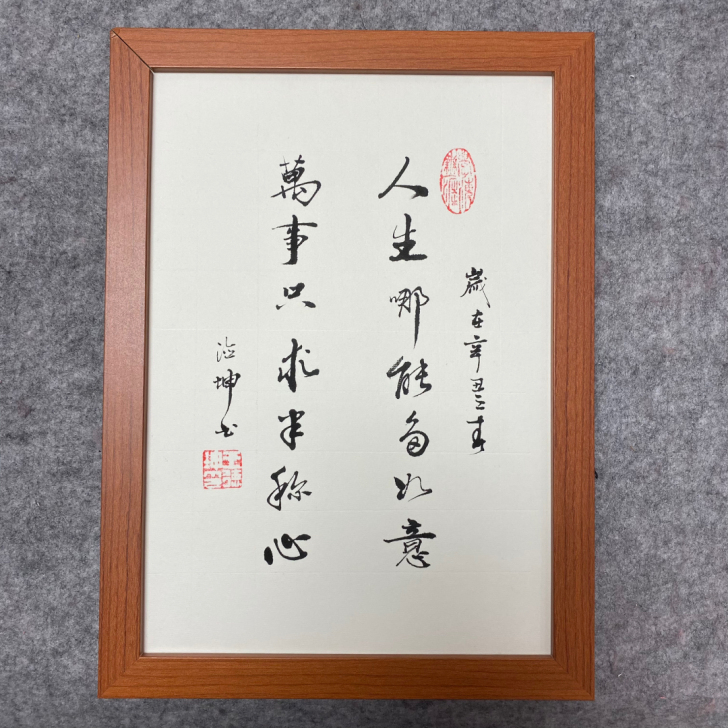 歲在辛丑之春
人生哪能多如意
萬事只求半称心
坤书